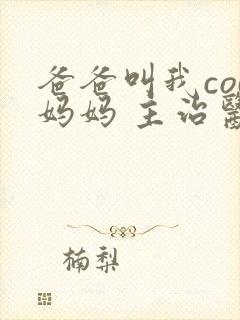 爸爸叫我co
妈妈 主治醫
楠梨